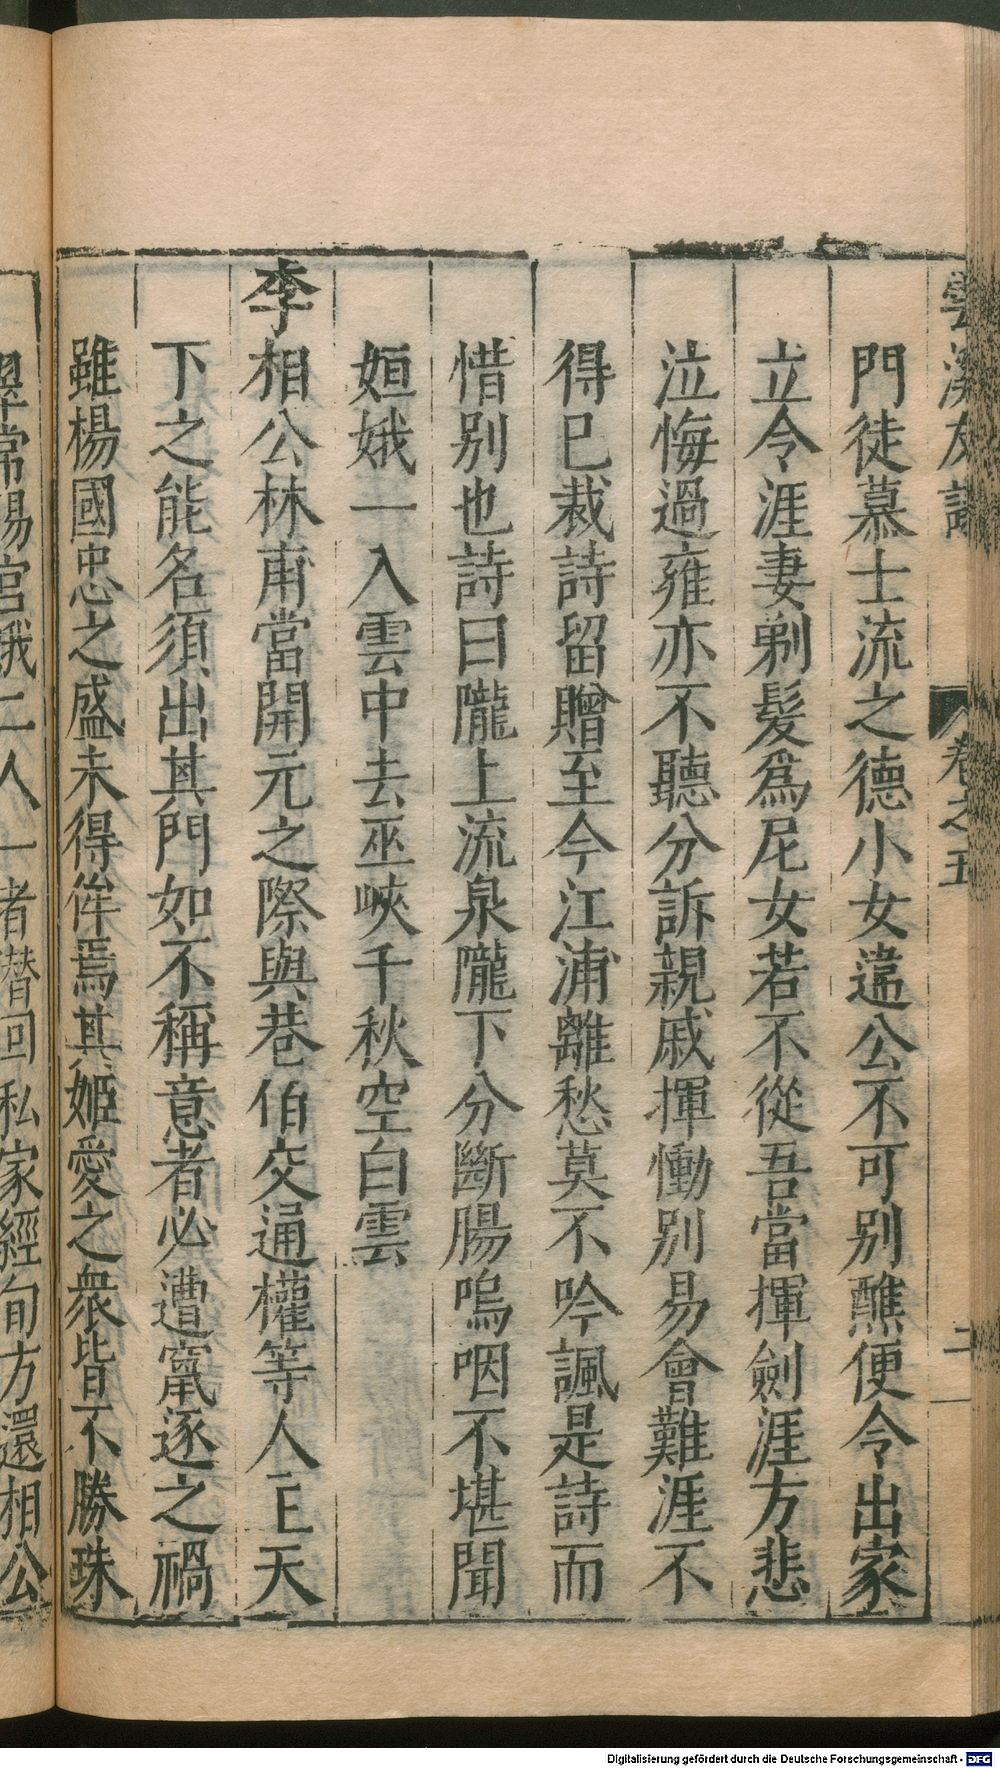 雲溪友議 卷之五 二
門徒慕士流之德小女違公不可別醮便令出家
立令涯妻剃髮爲尼女若不從吾當揮劍涯方悲
泣悔過雍亦不聽分訴親戚揮慟別易會難涯不
得已裁詩留贈至今江浦離愁莫不吟諷是詩而
惜別也詩曰隴上流泉隴下分斷腸嗚咽不堪聞
姮娥一入雲中去巫峽千秋空白雲
李相公林甫當開元之際與巷伯交通權等人主天
下之能名須出其門如不稱意者必遭竄逐之禍
雖楊國忠之盛未得侔焉其姬愛之衆皆不勝珠
翠常賜宮娥二人一者替回私家經旬方還相公
Digitalisierung gefördert durch die Deutsche Forschungsgemeinschaft - DFG